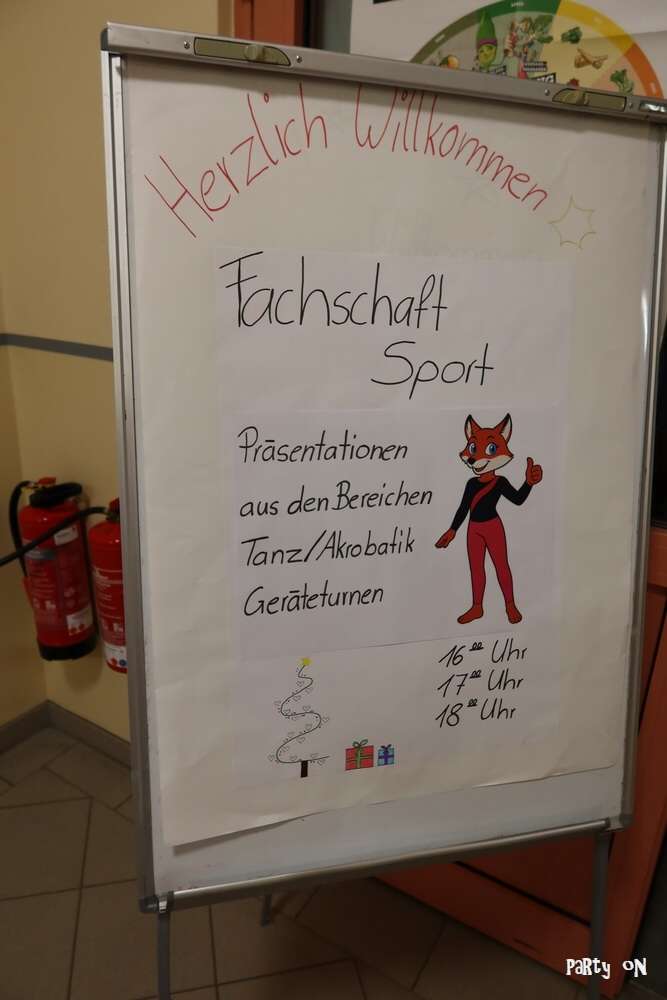 Herzlich Willkommen
Fachschaft
Sport
Präsentationen
aus den Bereichen
Tanz/Akrobatik
Geräteturnen
16⁰⁰ Uhr
17⁰⁰ Uhr
18⁰⁰ Uhr
PaRty oN